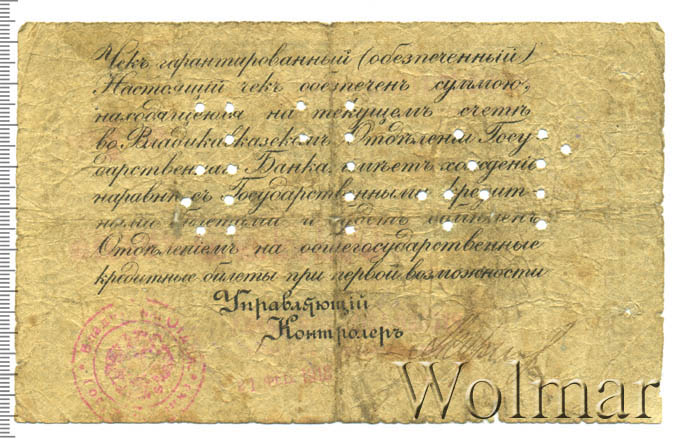 Чекъ гарантированный (обезпеченный)
Настоящій чекъ обезпеченъ суммою,
находящеюся на текущемъ счетѣ
во Владикавказскомъ Отдѣленіи Госу-
дарственнаго Банка, имѣетъ хожденіе
наравнѣ съ Государственными кредит-
ными билетами и будетъ обмѣненъ
Отдѣленіемъ на общегосударственные
кредитные билеты при первой возможности
Управляющій
Контролеръ
Wolmar